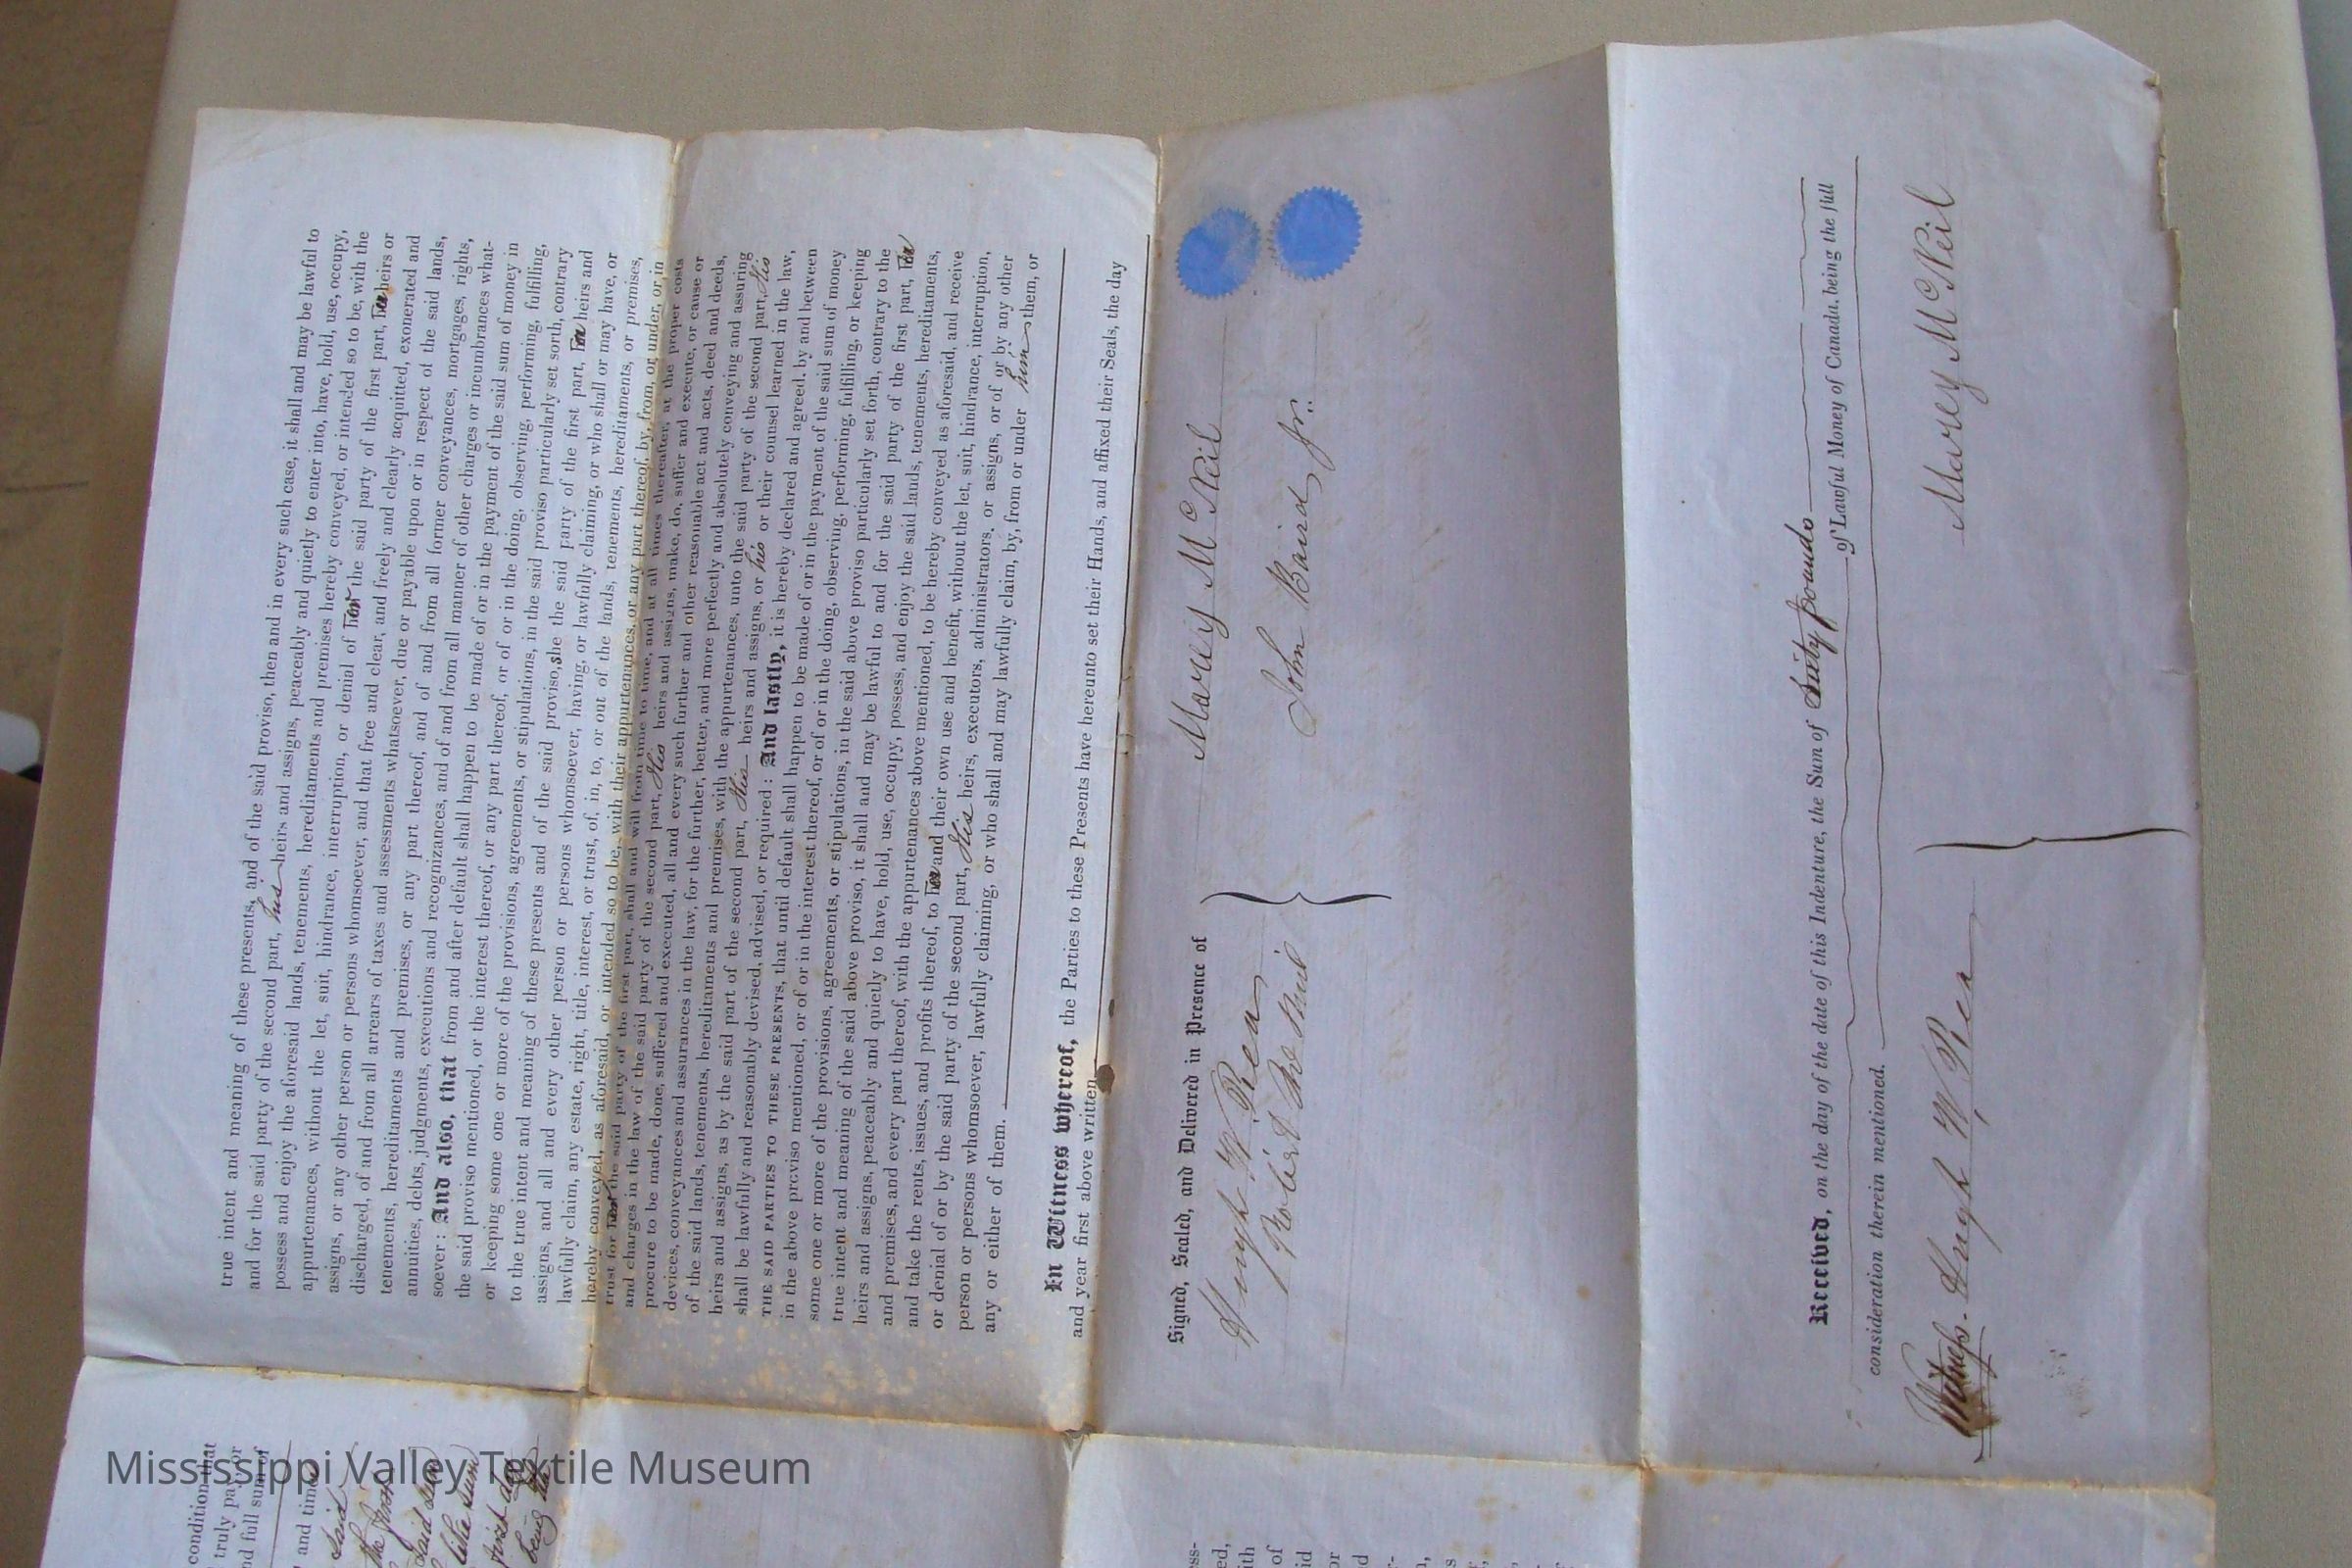 true intent and meaning of these presents, and of the said proviso, then and in every such case, it shall and may be lawful to
and for the said party of the second part, his heirs and assigns, peaceably and quietly to enter into, have, hold, use, occupy,
possess and enjoy the aforesaid lands, tenements, hereditaments and premises hereby conveyed, or intended so to be, with the
appurtenances, without the let, suit, hindrance, interruption, or denial of her the said party of the first part, her heirs or
assigns, or any other person or persons whomsoever, and that free and clear, and freely and clearly acquitted, exonerated and
discharged, of and from all arrears of taxes and assessments whatsoever, due or payable upon or in respect of the said lands,
tenements, hereditaments and premises, or any part thereof, and of and from all former conveyances, mortgages, rights,
annuities, debts, judgments, executions and recognizances, and of and from all manner of other charges or incumbrances what-
soever: And also, that from and after default shall happen to be made of or in the payment of the said sum of money in
the said proviso mentioned, or the interest thereof, or any part thereof, or of or in the doing, observing, performing, fulfilling,
or keeping some one or more of the provisions, agreements, or stipulations, in the said proviso particularly set forth, contrary
to the true intent and meaning of these presents and of the said proviso, she the said party of the first part, her heirs and
assigns, and all and every other person or persons whomsoever, having, or lawfully claiming, or who shall or may have, or
lawfully claim, any estate, right, title, interest, or trust, of, in, to, or out of the lands, tenements, hereditaments, or premises,
hereby conveyed, as aforesaid, or intended so to be, with their appurtenances, or any part thereof, by, from, or under, or in
trust for her the said party of the first part, shall and will from time to time, and at all times thereafter, at the proper costs
and charges in the law of the said party of the second part, His heirs and assigns, make, do, suffer and execute, or cause or
procure to be made, done, suffered and executed, all and every such further and other reasonable act and acts, deed and deeds,
devices, conveyances and assurances in the law, for the further, better, and more perfectly and absolutely conveying and assuring
of the said lands, tenements, hereditaments and premises, with the appurtenances, unto the said party of the second part, His
heirs and assigns, as by the said part of the second part, His heirs and assigns, or his or their counsel learned in the law,
shall be lawfully and reasonably devised, advised, or required: And lastly, it is hereby declared and agreed, by and between
THE SAID PARTIES TO THESE PRESENTS, that until default shall happen to be made of or in the payment of the said sum of money
in the above proviso mentioned, or of or in the interest thereof, or of or in the doing, observing, performing, fulfilling, or keeping
some one or more of the provisions, agreements, or stipulations, in the said above proviso particularly set forth, contrary to the
true intent and meaning of the said above proviso, it shall and may be lawful to and for the said party of the first part, her
heirs and assigns, peaceably and quietly to have, hold, use, occupy, possess, and enjoy the said lands, tenements, hereditaments,
and premises, and every part thereof, with the appurtenances above mentioned, to be hereby conveyed as aforesaid, and receive
and take the rents, issues, and profits thereof, to her and their own use and benefit, without the let, suit, hindrance, interruption,
or denial of or by the said party of the second part, His heirs, executors, administrators, or assigns, or of or by any other
person or persons whomsoever, lawfully claiming, or who shall and may lawfully claim, by, from or under him them, or
any or either of them.
In Witness whereof, the Parties to these Presents have hereunto set their Hands, and affixed their Seals, the day
and year first above written
Signed, Sealed, and Delivered in Presence of
Hugh W. Rea
Robert McNeil
Marey McNeil
John Baird Jr.
Received, on the day of the date of this Indenture, the Sum of Sixty pounds
of Lawful Money of Canada, being the full
consideration therein mentioned.
Witness. Hugh W. Rea
Marey McNeil
condition that
truly pay, or
full sum of
and time
said
the first
said sum
like sum
first day
being the
Mississippi Valley Textile Museum